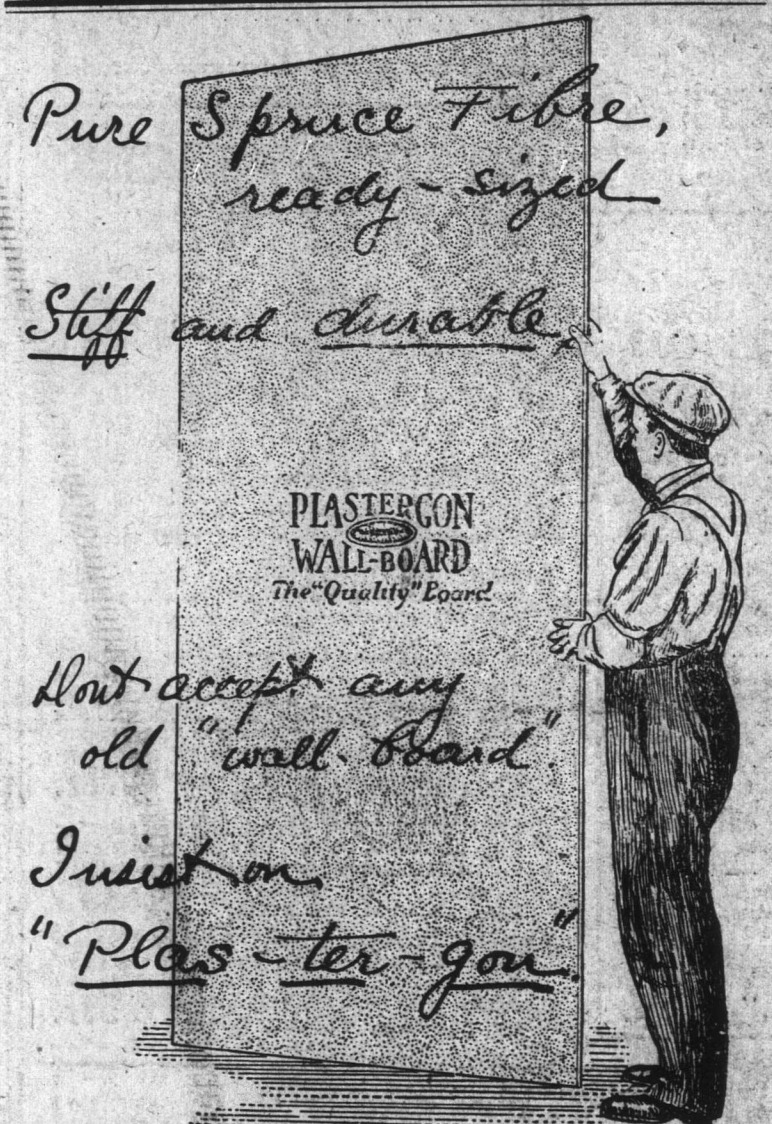 Pure Spruce Fibre,
ready-sized
Stiff and durable.
PLASTERGON
WALL-BOARD
The "Quality" Board
Dont accept any
old "wall-board".
Insist on
"Plas-ter-gon".